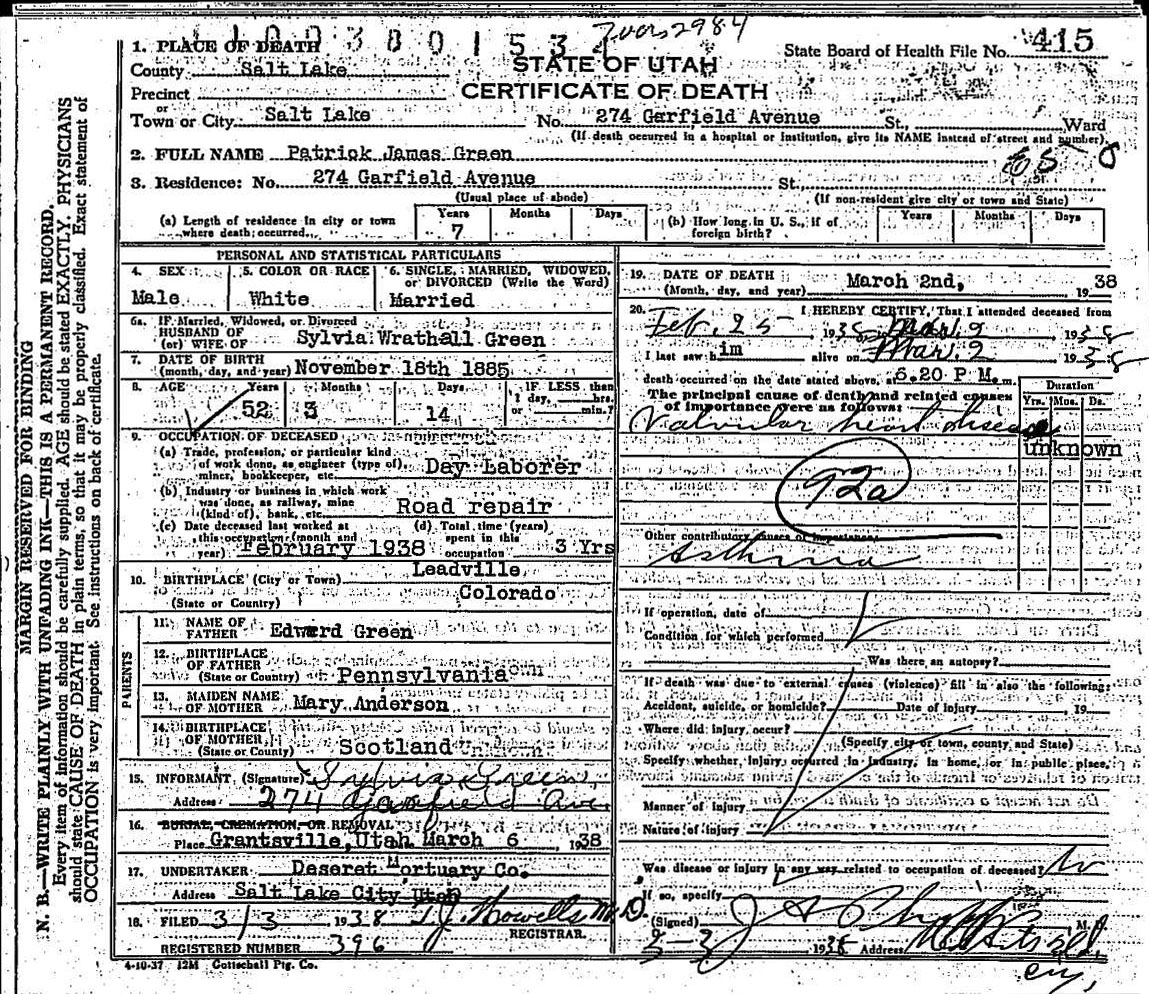 1100380153 7vors2984
1. PLACE OF DEATH State Board of Health File No. 415
County Salt Lake STATE OF UTAH
Precinct CERTIFICATE OF DEATH
or
Town or City Salt Lake No. 274 Garfield Avenue St., Ward
(If death occurred in a hospital or institution, give its NAME instead of street and number)
2. FULL NAME Patrick James Green
3. Residence: No. 274 Garfield Avenue St.
(Usual place of abode) (If non-resident give city or town and State)
(a) Length of residence in city or town where death occurred Years 7 Months Days
(b) How long in U. S., if of foreign birth? Years Months Days
PERSONAL AND STATISTICAL PARTICULARS
4. SEX Male
5. COLOR OR RACE White
6. SINGLE, MARRIED, WIDOWED, or DIVORCED (Write the Word) Married
6a. If Married, Widowed, or Divorced
HUSBAND OF
(or) WIFE OF Sylvia Wrathall Green
7. DATE OF BIRTH
(month, day, and year) November 18th 1885
8. AGE Years 52 Months 3 Days 14 IF LESS than 1 day, hrs. or min.?
9. OCCUPATION OF DECEASED
(a) Trade, profession, or particular kind of work done, as engineer (type of) miner, bookkeeper, etc. Day Laborer
(b) Industry or business in which work was done, as railway, mine (kind of), bank, etc. Road repair
(c) Date deceased last worked at this occupation (month and year) February 1938
(d) Total time (years) spent in this occupation 3 Yrs
10. BIRTHPLACE (City or Town) Leadville
(State or Country) Colorado
PARENTS
11. NAME OF FATHER Edward Green
12. BIRTHPLACE OF FATHER
(State or Country) Pennsylvania
13. MAIDEN NAME OF MOTHER Mary Anderson
14. BIRTHPLACE OF MOTHER
(State or County) Scotland
15. INFORMANT (Signature) Sylvia Green
Address 274 Garfield Ave.
16. BURIAL, CREMATION, OR REMOVAL
Place Grantsville, Utah March 6 1938
17. UNDERTAKER Deseret Mortuary Co.
Address Salt Lake City Utah
18. FILED 3/3 1938 Howells M.D.
REGISTRAR.
REGISTERED NUMBER 396
4-10-37 12M Gottschall Ptg. Co.
19. DATE OF DEATH
(Month, day, and year) March 2nd, 1938
20. I HEREBY CERTIFY, That I attended deceased from
Feb. 25 1938 Mar. 2 1938
I last saw him alive on Mar. 2 1938
death occurred on the date stated above, at 6.20 P M. m.
The principal cause of death and related causes of importance were as follows:
Duration
Yrs. Mos. Ds.
Valvular heart disease unknown
92a
Other contributory causes of importance:
Asthma
If operation, date of
Condition for which performed
Was there an autopsy?
If death was due to external causes (violence) fill in also the following:
Accident, suicide, or homicide? Date of injury 19
Where did injury occur?
(Specify city or town, county and State)
Specify whether injury occurred in industry, in home, or in public place.
Manner of injury
Nature of injury
Was disease or injury in any way related to occupation of deceased? No
If so, specify
(Signed) M. D.
3-3 1938 Address
MARGIN RESERVED FOR BINDING
N. B.—WRITE PLAINLY WITH UNFADING INK—THIS IS A PERMANENT RECORD.
Every item of information should be carefully supplied. AGE should be stated EXACTLY. PHYSICIANS
should state CAUSE OF DEATH in plain terms, so that it may be properly classified. Exact statement of
OCCUPATION is very important. See instructions on back of certificate.